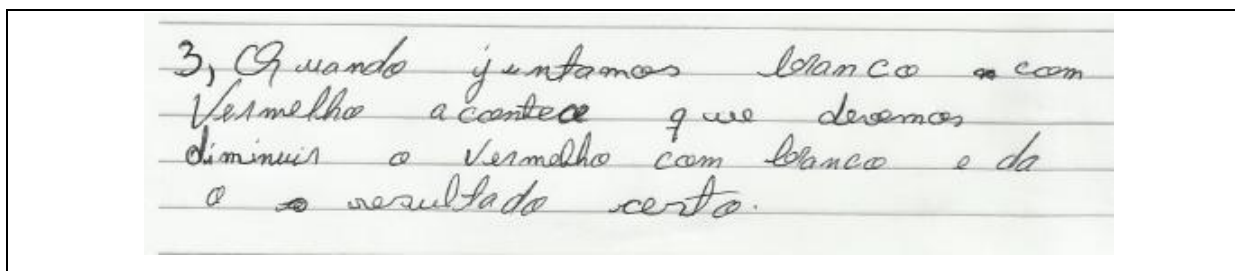 3, Quando juntamos branco com
Vermelho acontece que devemos
diminuir o Vermelho com branco e da
o resultado certo.